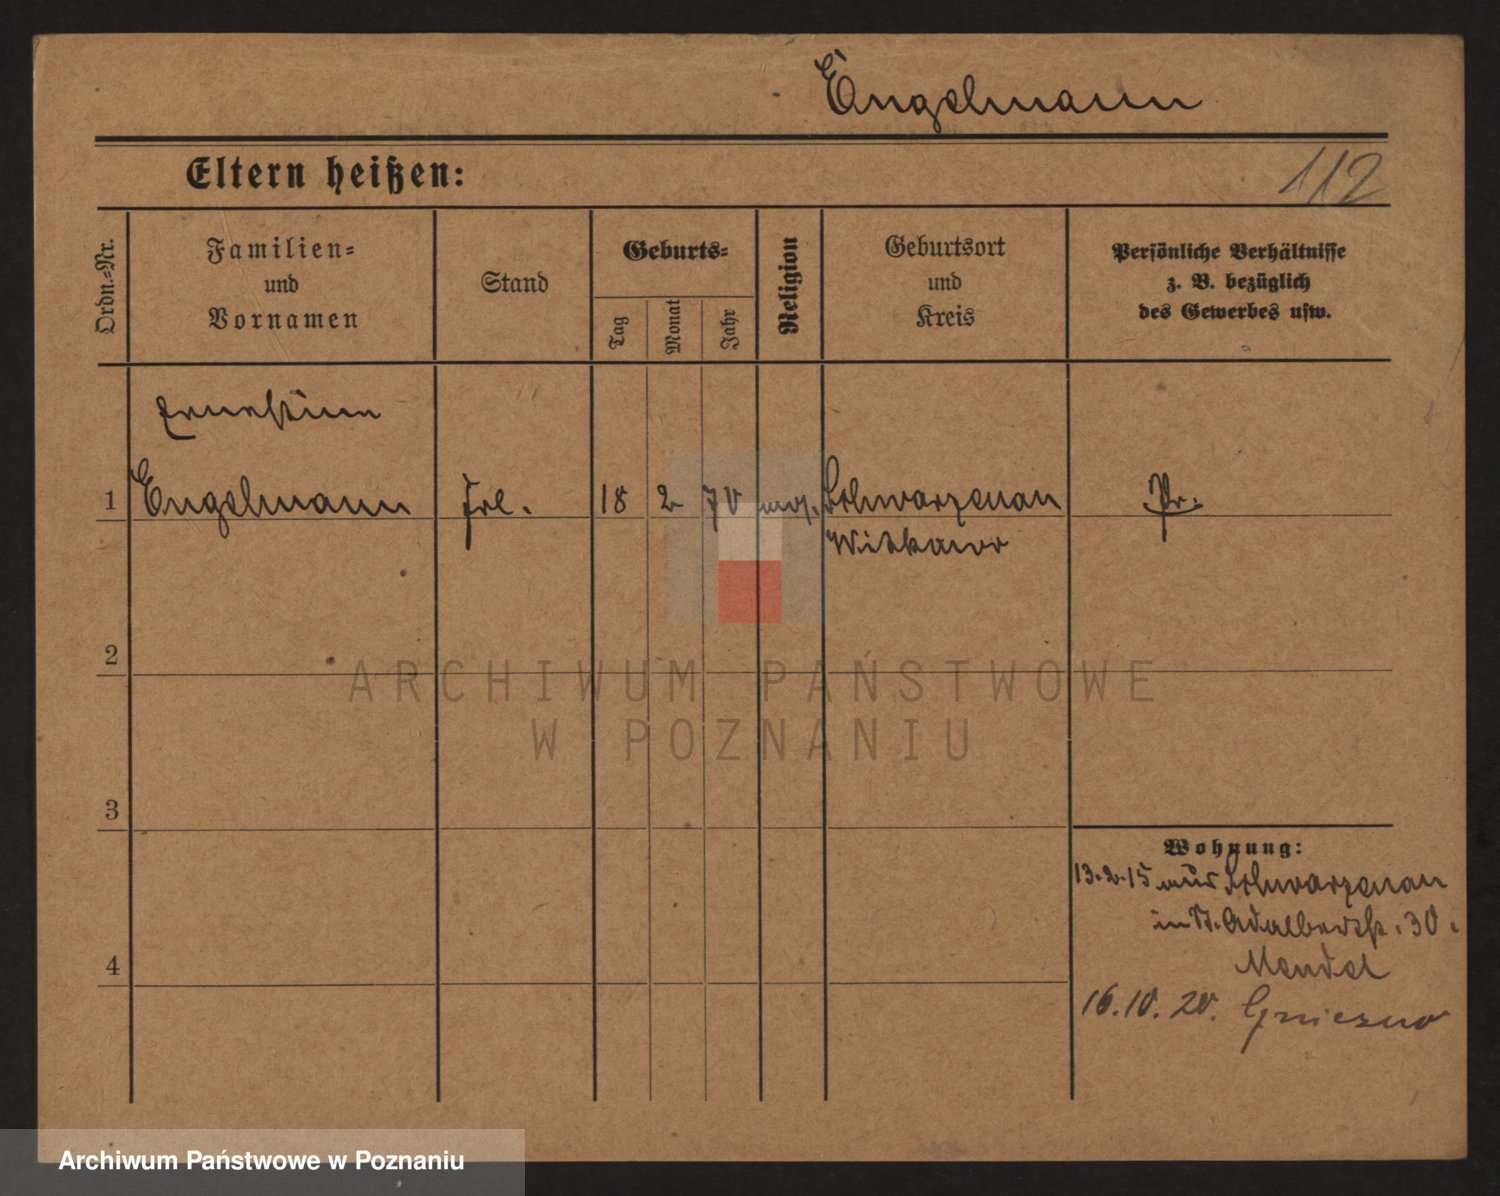 Engelmann
Eltern heißen:
112
Ordn.=Nr.
Familien=
und
Vornamen
Stand
Geburts=
Tag
Monat
Jahr
Religion
Geburtsort
und
Kreis
Persönliche Verhältnisse
z. B. bezüglich
des Gewerbes usw.
Ernestine
1 Engelmann Frl. 18 2 70 mos. Schwarzenau Pr.
Witkowo
2
3
4
Wohnung:
13.2.15 aus Schwarzenau
in St. Adalbertstr. 30.
Mendel
16.10.20. Gniezno
ARCHIWUM PAŃSTWOWE
W POZNANIU
Archiwum Państwowe w Poznaniu